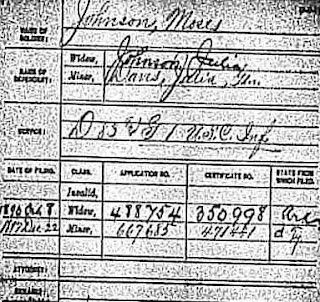 Johnson, Moses
NAME OF SOLDIER:
NAME OF DEPENDENT:
Widow, Johnson, Julia
Minor, Davis, Julia, Gdn
SERVICE: D 53 U.S.C. Inf
DATE OF FILING. CLASS. APPLICATION NO. CERTIFICATE NO. STATE FROM WHICH FILED.
Invalid,
1890 Oct 8 Widow, 488754 350998
Dec 22 Minor, 667685 471441
ATTORNEY:
REMARKS: